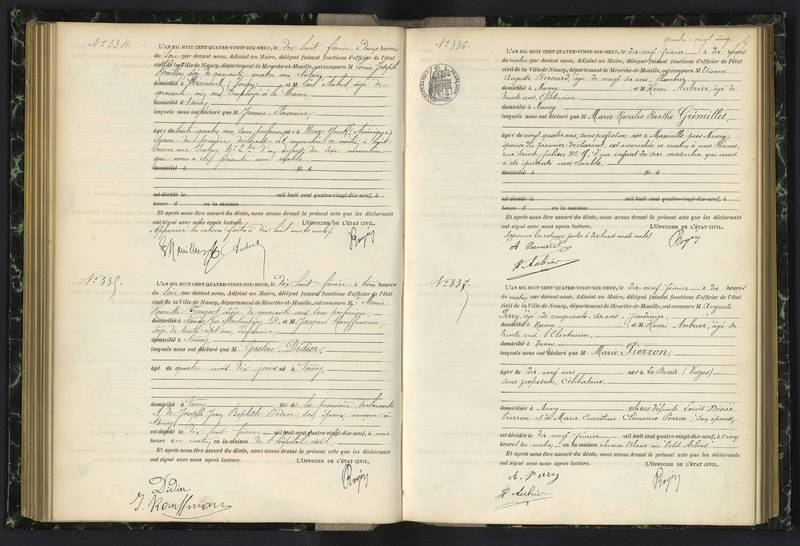 N° 334.
L'AN MIL HUIT CENT QUATRE-VINGT-DIX-NEUF, le dix huit février à deux heures
du soir par devant nous, Adjoint au Maire, délégué faisant fonctions d'officier de l'état
civil de la Ville de Nancy, département de Meurthe-et-Moselle, ont comparu M Joseph
âgé de quarante quatre ans
domicilié à et M Paul Aubert, âgé de
quarante ans Employé à la Mairie
domicilié à Nancy
lesquels nous ont déclaré que M Jeanne Fournier,
âgée de trente quatre ans, sans profession, née à New-York (Amérique)
épouse du premier déclarant est accouchée ce matin, à sept
heures d'un enfant du sexe masculin
qui nous a été présenté non viable.
domicilié à fils d
est décédé le mil huit cent quatre-vingt-dix-neuf, à
heure d en la maison
Et après nous être assuré du décès, nous avons dressé le présent acte que les déclarants
ont signé avec nous après lecture. L'OFFICIER DE L'ÉTAT CIVIL,
Approuvé les ratures faites à dix huit mots nuls.
Aubert
N° 335.
L'AN MIL HUIT CENT QUATRE-VINGT-DIX-NEUF, le dix huit février à trois heures
du soir par devant nous, Adjoint au Maire, délégué faisant fonctions d'officier de l'état
civil de la Ville de Nancy, département de Meurthe-et-Moselle, ont comparu M Marie
âgée de quarante ans sans profession,
domiciliée à et M Jacques Kauffmann,
âgé de trente sept ans,
domicilié à Nancy
lesquels nous ont déclaré que M Gaston Didier,
âgé de quatre mois dix jours né à Nancy
domicilié à Nancy fils de la première déclarante
et de Joseph Jean Baptiste Didier, son époux
Nancy
est décédé le dix huit février mil huit cent quatre-vingt-dix-neuf, à une
heure du matin, en la maison de l'hôpital civil
Et après nous être assuré du décès, nous avons dressé le présent acte que les déclarants
ont signé avec nous après lecture. L'OFFICIER DE L'ÉTAT CIVIL,
Didier
J. Kauffmann
quatre-vingt cinq.
N° 336.
L'AN MIL HUIT CENT QUATRE-VINGT-DIX-NEUF, le dix neuf février à dix heures
du matin par devant nous, Adjoint au Maire, délégué faisant fonctions d'officier de l'état
civil de la Ville de Nancy, département de Meurthe-et-Moselle, ont comparu M Etienne
Auguste Bernard, âgé de vingt six ans, Plombier,
domicilié à Nancy et M Henri Aubrier, âgé de
trente ans, Electricien,
domicilié à Nancy
lesquels nous ont déclaré que M Marie Rosalie Berthe Grémillet,
âgée de vingt quatre ans, sans profession née à Maxéville près Nancy,
épouse du premier déclarant, est accouchée ce matin, à une heure,
rue Saint Julien, N° 17, d'un enfant du sexe masculin qui nous
a été présenté non viable.
domicilié à fils d
est décédé le mil huit cent quatre-vingt-dix-neuf, à
heure d en la maison
Et après nous être assuré du décès, nous avons dressé le présent acte que les déclarants
ont signé avec nous après lecture. L'OFFICIER DE L'ÉTAT CIVIL,
Approuvé les ratures faites à dix huit mots nuls.
A Bernard
H Aubrier
N° 337.
L'AN MIL HUIT CENT QUATRE-VINGT-DIX-NEUF, le dix neuf février à dix heures
du matin par devant nous, Adjoint au Maire, délégué faisant fonctions d'officier de l'état
civil de la Ville de Nancy, département de Meurthe-et-Moselle, ont comparu M Auguste
âgé de cinquante ans, Jardinier,
domicilié à Nancy et M Henri Aubrier, âgé de
trente ans Electricien,
domicilié à Nancy
lesquels nous ont déclaré que M Marie Pierron,
âgée de dix neuf ans née à La Bresse (Vosges)
sans profession, Célibataire
domiciliée à Nancy fille des défunts Louis Désiré
Pierron et de Marie Ernestine Clémence Perrin, son épouse,
est décédée le dix neuf février mil huit cent quatre-vingt-dix-neuf, à cinq
heures du matin, en la maison
Et après nous être assuré du décès, nous avons dressé le présent acte que les déclarants
ont signé avec nous après lecture. L'OFFICIER DE L'ÉTAT CIVIL,
H Aubrier